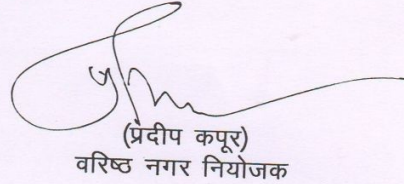 (प्रदीप कपूर)
वरिष्ठ नगर नियोजक